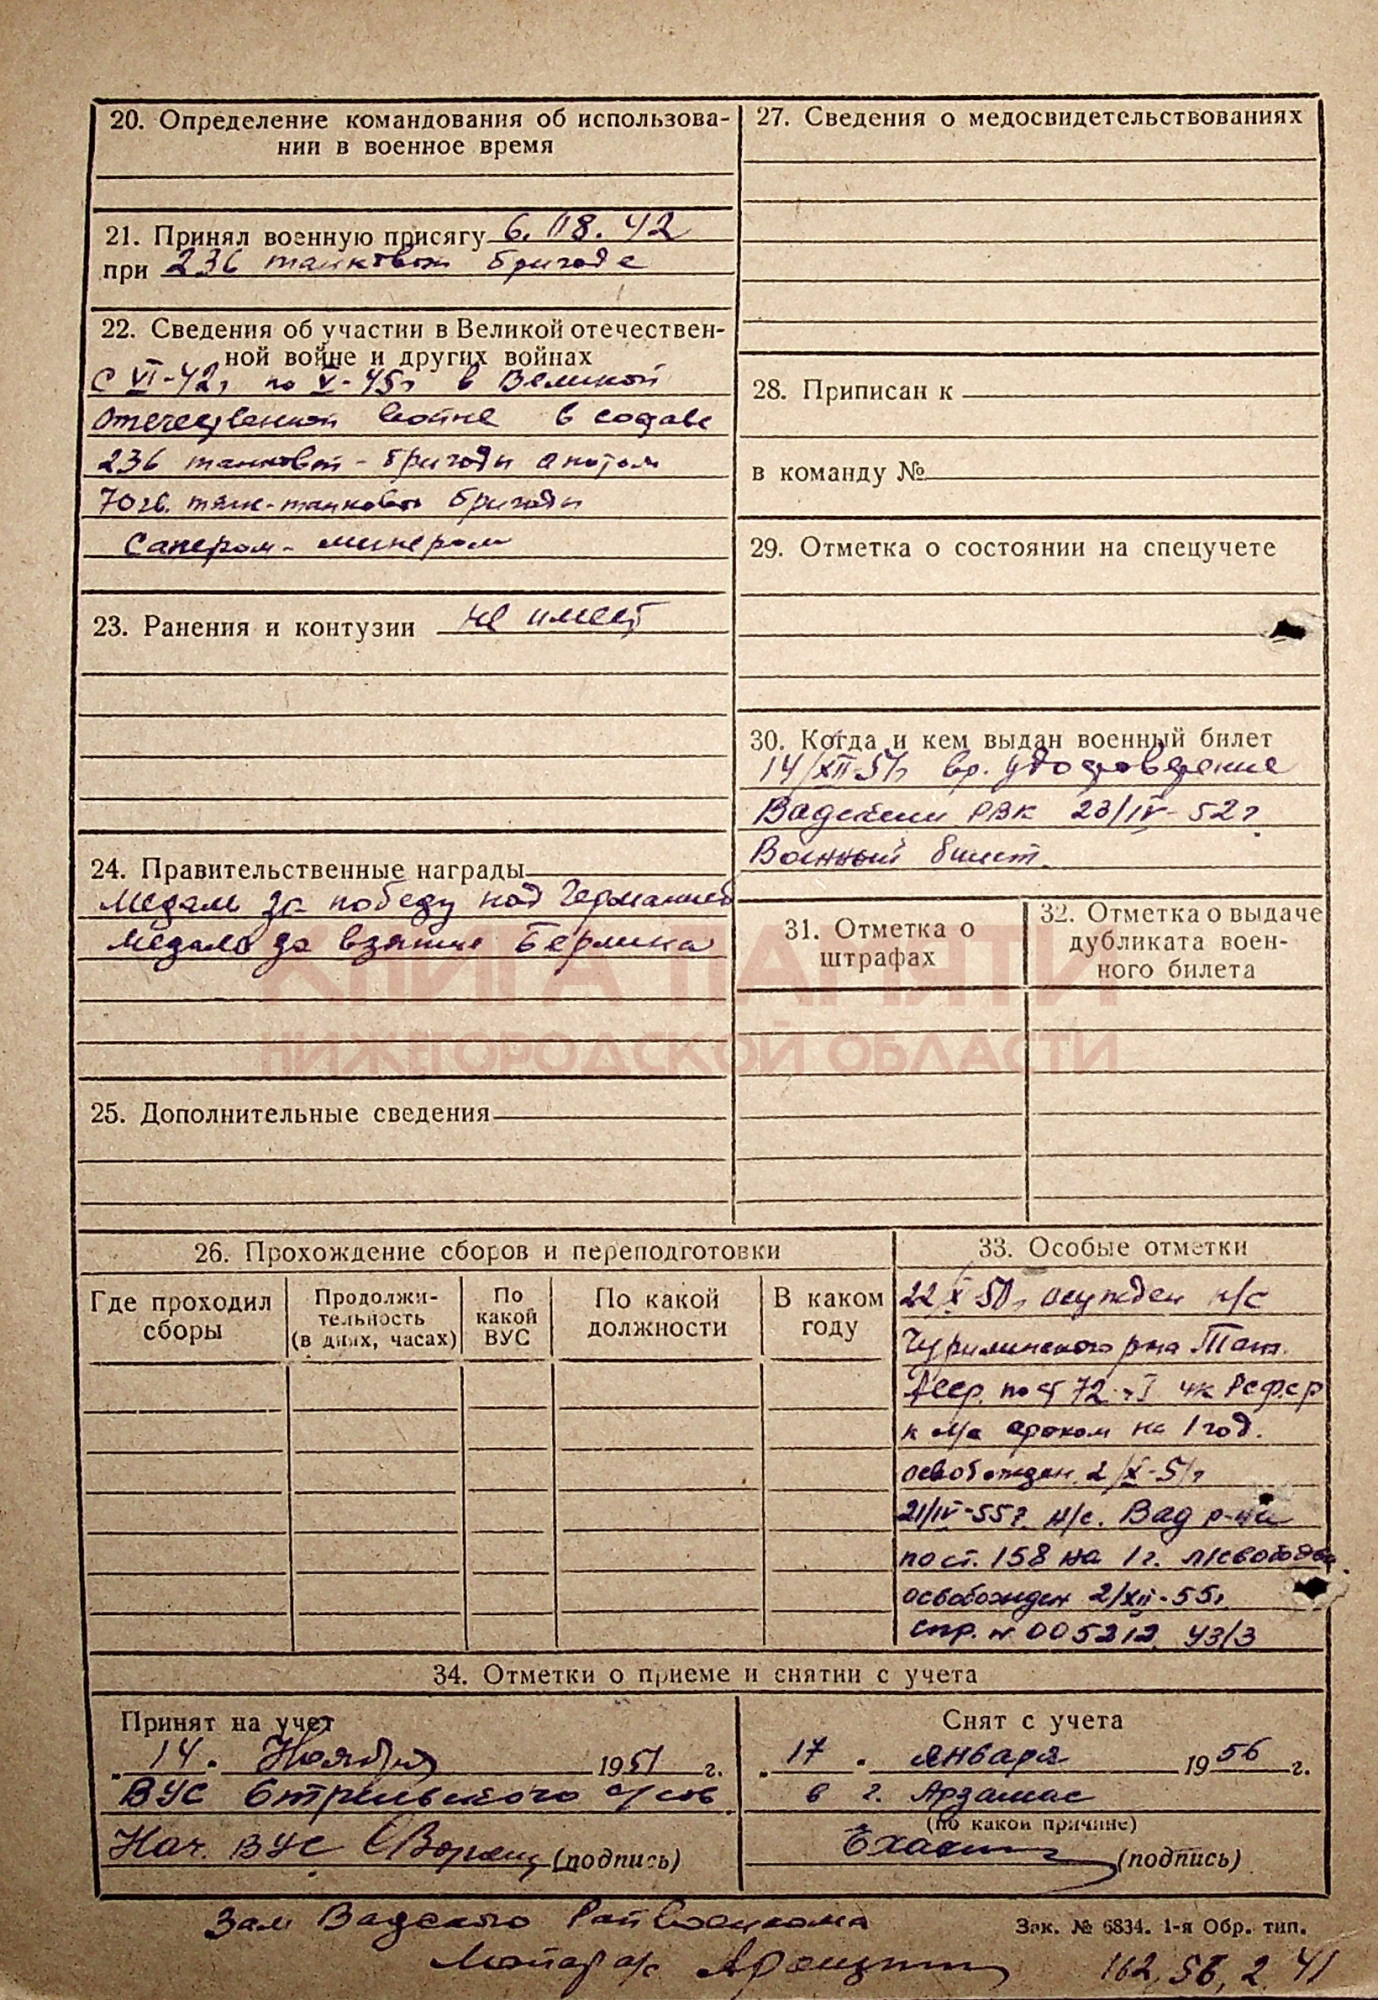 20. Определение командования об использова-
нии в военное время
21. Принял военную присягу 6. 08. 42
при 236 танковой бригаде
22. Сведения об участии в Великой отечествен-
ной войне и других войнах
С VI-42г по V-45г в Великой
Отечественной войне в составе
236 танковой - бригады а потом
70 гв. тяж-танковой бригады
Сапером - минером
23. Ранения и контузии не имеет
24. Правительственные награды
Медаль за победу над Германией
Медаль за взятие Берлина
25. Дополнительные сведения
27. Сведения о медосвидетельствованиях
28. Приписан к
в команду №
29. Отметка о состоянии на спецучете
30. Когда и кем выдан военный билет
14/XII-51г вр. удостоверение
Вадским РВК 23/IV-52г
Военный билет.
31. Отметка о
штрафах
32. Отметка о выдаче
дубликата воен-
ного билета
КНИГА ПАМЯТИ
НИЖЕГОРОДСКОЙ ОБЛАСТИ
26. Прохождение сборов и переподготовки
Где проходил
сборы
Продолжи-
тельность
(в днях, часах)
По
какой
ВУС
По какой
должности
В каком
году
33. Особые отметки
22/X 50г осужден н/с
р-на Тат.
Асср. по ст 72 ч I ук РСФСР
к л/с сроком на 1 год.
освобожден 2/X-51г
21/IV-55г. н/с. Вад р-на
по ст. 158 на 1 г. л/свободы
освобожден 2/XII-55г
Спр. № 005212
34. Отметки о приеме и снятии с учета
Принят на учет
14. Ноября 1951 г.
ВУС Стрельского с/сов
Нач. ВУС (подпись)
Снят с учета
17. января 1956 г.
в г. Арзамас
(по какой причине)
(подпись)
Зам Вадского Райвоенкома
Зак. № 6834. 1-я Обр. тип.
162, 56, 2. 41